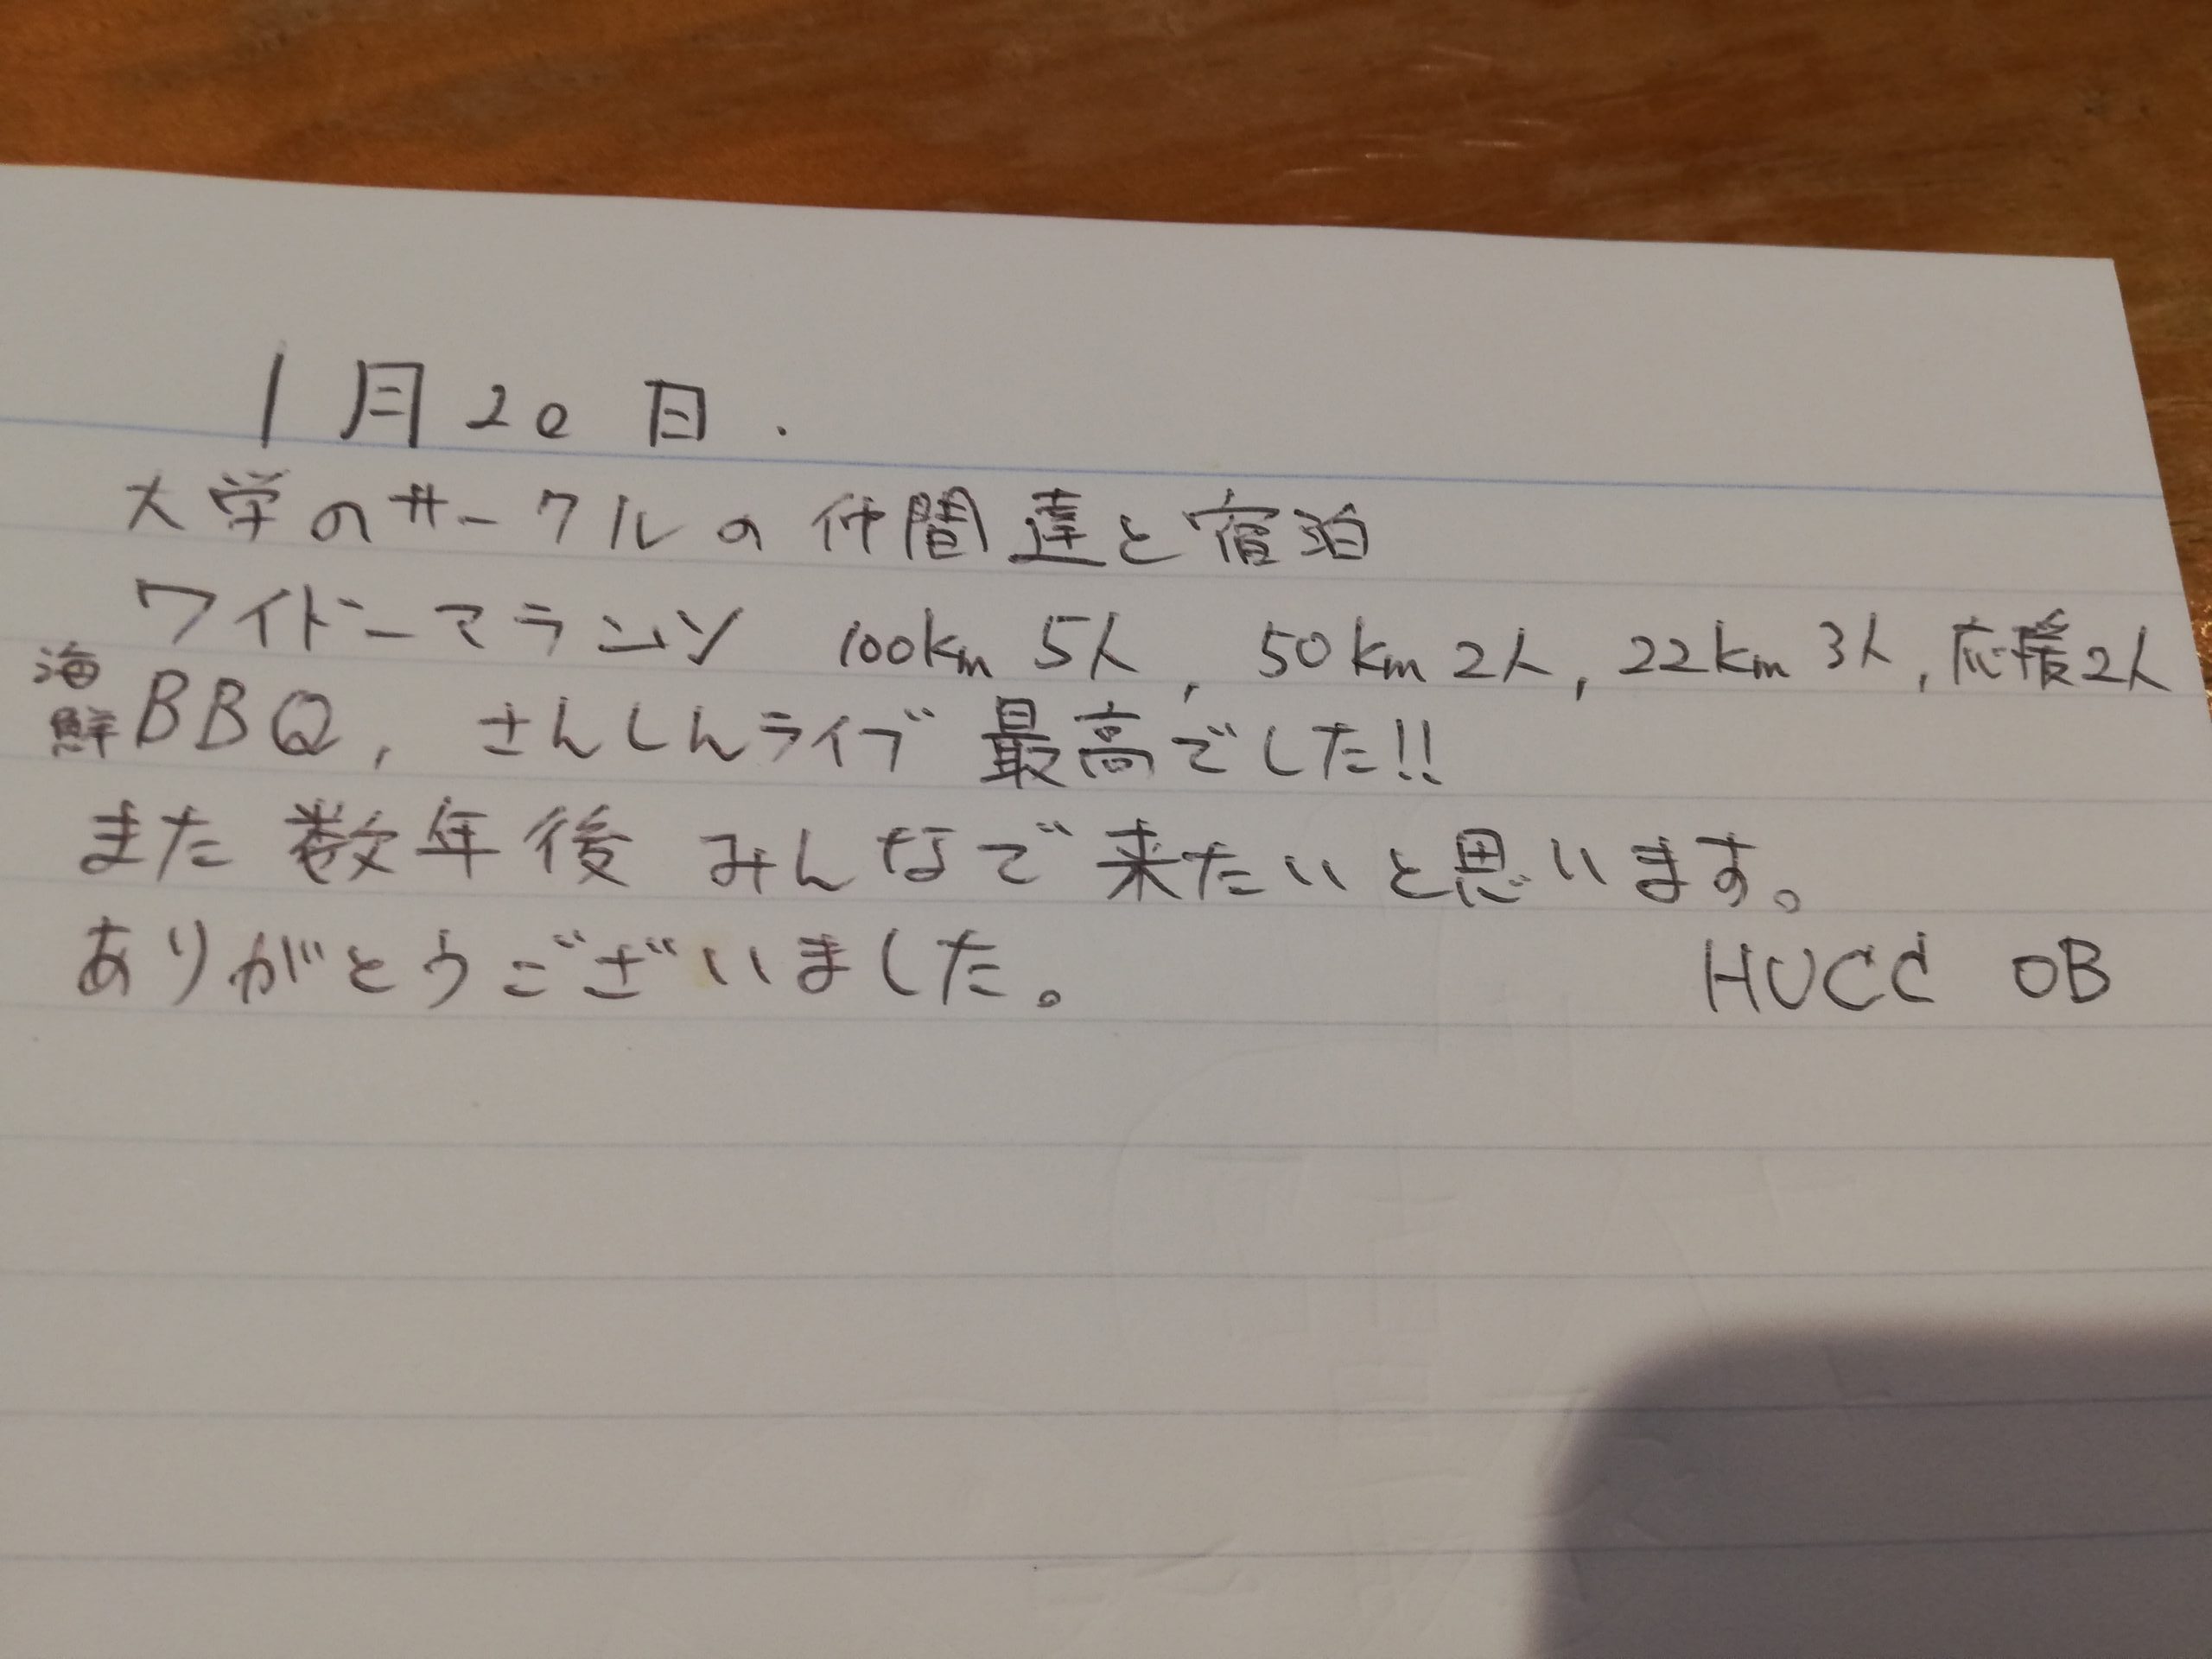 1月20日.
大学のサークルの仲間達と宿泊
ワイドーマラソン 100km 5人, 50km 2人, 22km 3人, 応援2人
海鮮BBQ, さんしんライブ 最高でした!!
また数年後 みんなで来たいと思います。
ありがとうございました。 HUCC OB